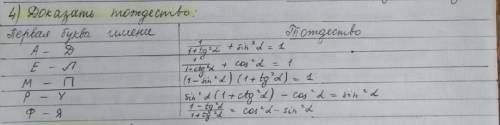 4) Доказать тождество:
Первая буква имени Тождество
А – Д 1/(1+tg²α) + sin²α = 1
Е – Л 1/(1+ctg²α) + cos²α = 1
М – П (1 – sin²α)(1+tg²α) = 1
Р – У sin²α(1+ctg²α) – cos²α = sin²α
Ф – Я (1–tg²α)/(1+tg²α) = cos²α – sin²α